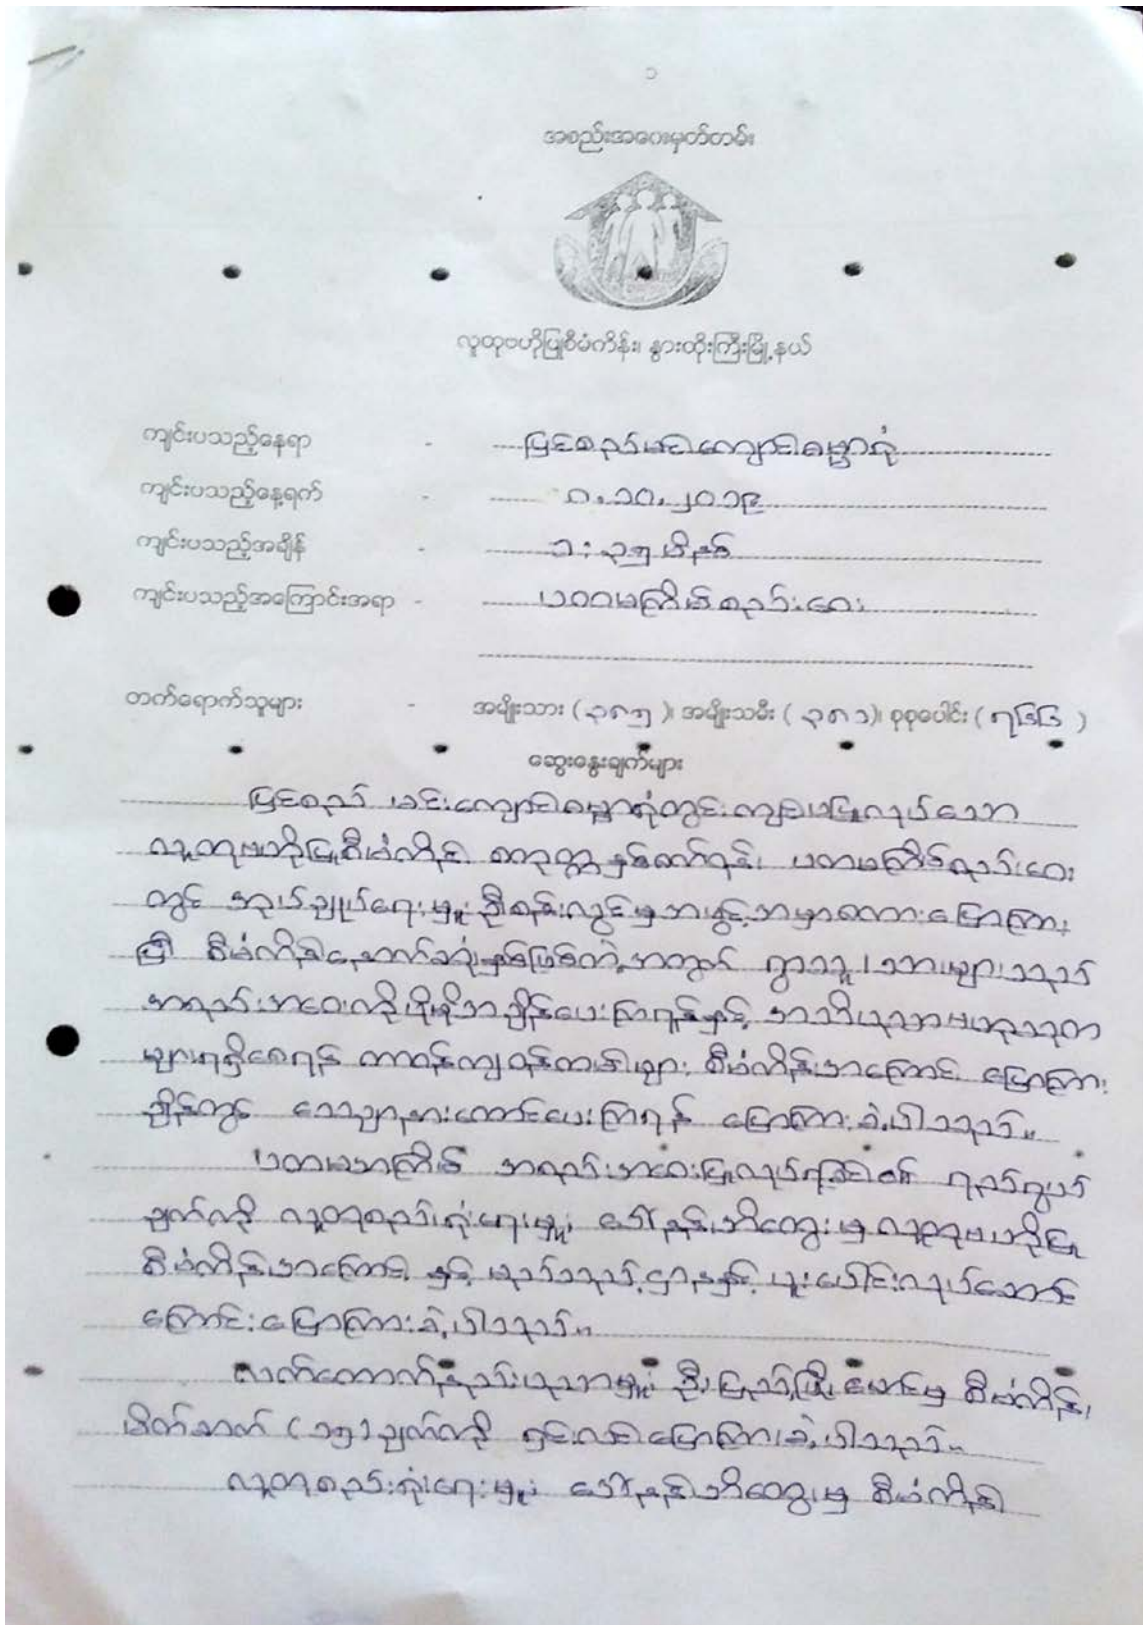 ၁
အစည်းအဝေးမှတ်တမ်း
လူထုဗဟိုပြုစီမံကိန်း၊ နွားထိုးကြီးမြို့နယ်
ကျင်းပသည့်နေရာ - မြင်စည်မင်းကျောင်းဓမ္မာရုံ
ကျင်းပသည့်နေ့ရက် - ၈.၁၀.၂၀၁၉
ကျင်းပသည့်အချိန် - ၁:၃၅ မိနစ်
ကျင်းပသည့်အကြောင်းအရာ - ပထမကြိမ်စည်းဝေး
တက်ရောက်သူများ - အမျိုးသား (၃၈၅)၊ အမျိုးသမီး (၃၈၁)၊ စုစုပေါင်း (၇၆၆)
ဆွေးနွေးချက်များ
မြင်စည် မင်းကျောင်းဓမ္မာရုံတွင် ကျင်းပပြုလုပ်သော
လူထုဗဟိုပြုစီမံကိန်း စတုတ္ထနှစ် ပထမကြိမ်စည်းဝေး
တွင် အုပ်ချုပ်ရေးမှူး ဦးစန်းလွင်မှ အမှာစကားပြောကြား
ပြီး စီမံကိန်းနောက်ဆုံးနှစ်ဖြစ်တဲ့အတွက် ရွာသူ/သားများသည်
အစည်းအဝေးကိုမိမိအချိန်ပေးကြရန်နှင့် အသိပညာဗဟုသုတ
များရရှိစေရန် တာဝန်ကျဝန်ထမ်းများ စီမံကိန်းအကြောင်း ပြောကြား
ချိန်တွင် သေချာနားထောင်ပေးကြရန် ပြောကြားခဲ့ပါသည်။
ပထမအကြိမ် အစည်းအဝေးပြုလုပ်ရခြင်း၏ ရည်ရွယ်
ချက်ကို လူထုစည်းရုံးရေးမှူး ဒေါ်နန်းအိထွေးမှ လူထုဗဟိုပြု
စီမံကိန်းအကြောင်း နှင့် မည်သည့်ဌာနနှင့် ပူးပေါင်းလုပ်ဆောင်
ကြောင်းပြောကြားခဲ့ပါသည်။
လက်ထောက်နည်းပညာမှူး ဦးပြည့်ဖြိုးမောင်မှ စီမံကိန်း
မိတ်ဆက် (၁၅)ချက်ကို ရှင်းလင်းပြောကြားခဲ့ပါသည်။
လူထုစည်းရုံးရေးမှူး ဒေါ်နန်းအိထွေးမှ စီမံကိန်း